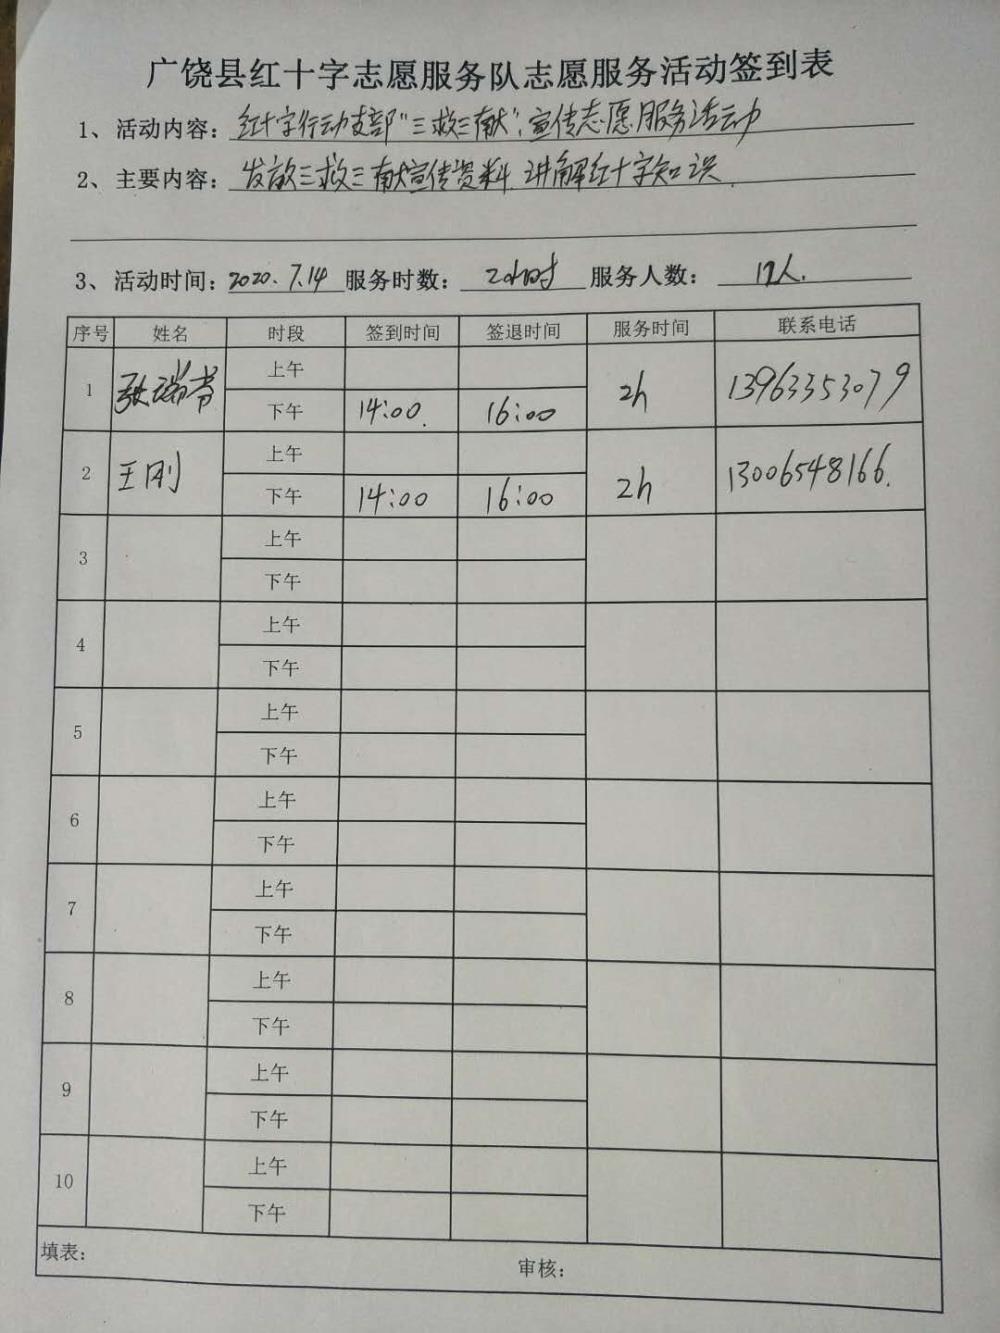 广饶县红十字志愿服务队志愿服务活动签到表
1、活动内容：红十字行动支部“三救三献”宣传志愿服务活动
2、主要内容：发放三救三献宣传资料.讲解红十字知识.
3、活动时间：2020.7.14 服务时数：2小时 服务人数：12人.
序号 姓名 时段 签到时间 签退时间 服务时间 联系电话
1 张瑞芳 上午 2h 13963353079
下午 14:00. 16:00
2 王刚 上午 2h 13006548166.
下午 14:00 16:00
3 上午
下午
4 上午
下午
5 上午
下午
6 上午
下午
7 上午
下午
8 上午
下午
9 上午
下午
10 上午
下午
填表： 审核：